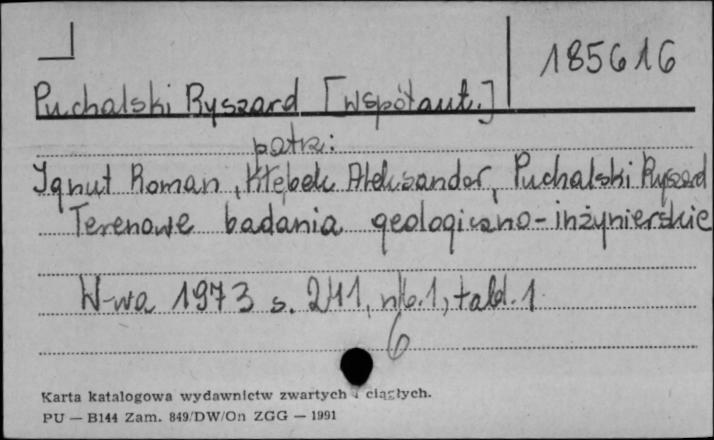 185616
Puchalski Ryszard [współaut.]
patrz:
Ignut Roman, Kłębek Aleksander, Puchalski Ryszard
Terenowe badania geologiczno-inżynierskie
W-wa 1973 s. 241, nlb. 1, tabl. 1
6
Karta katalogowa wydawnictw zwartych i ciągłych.
PU — B144 Zam. 849/DW/On ZGG — 1991